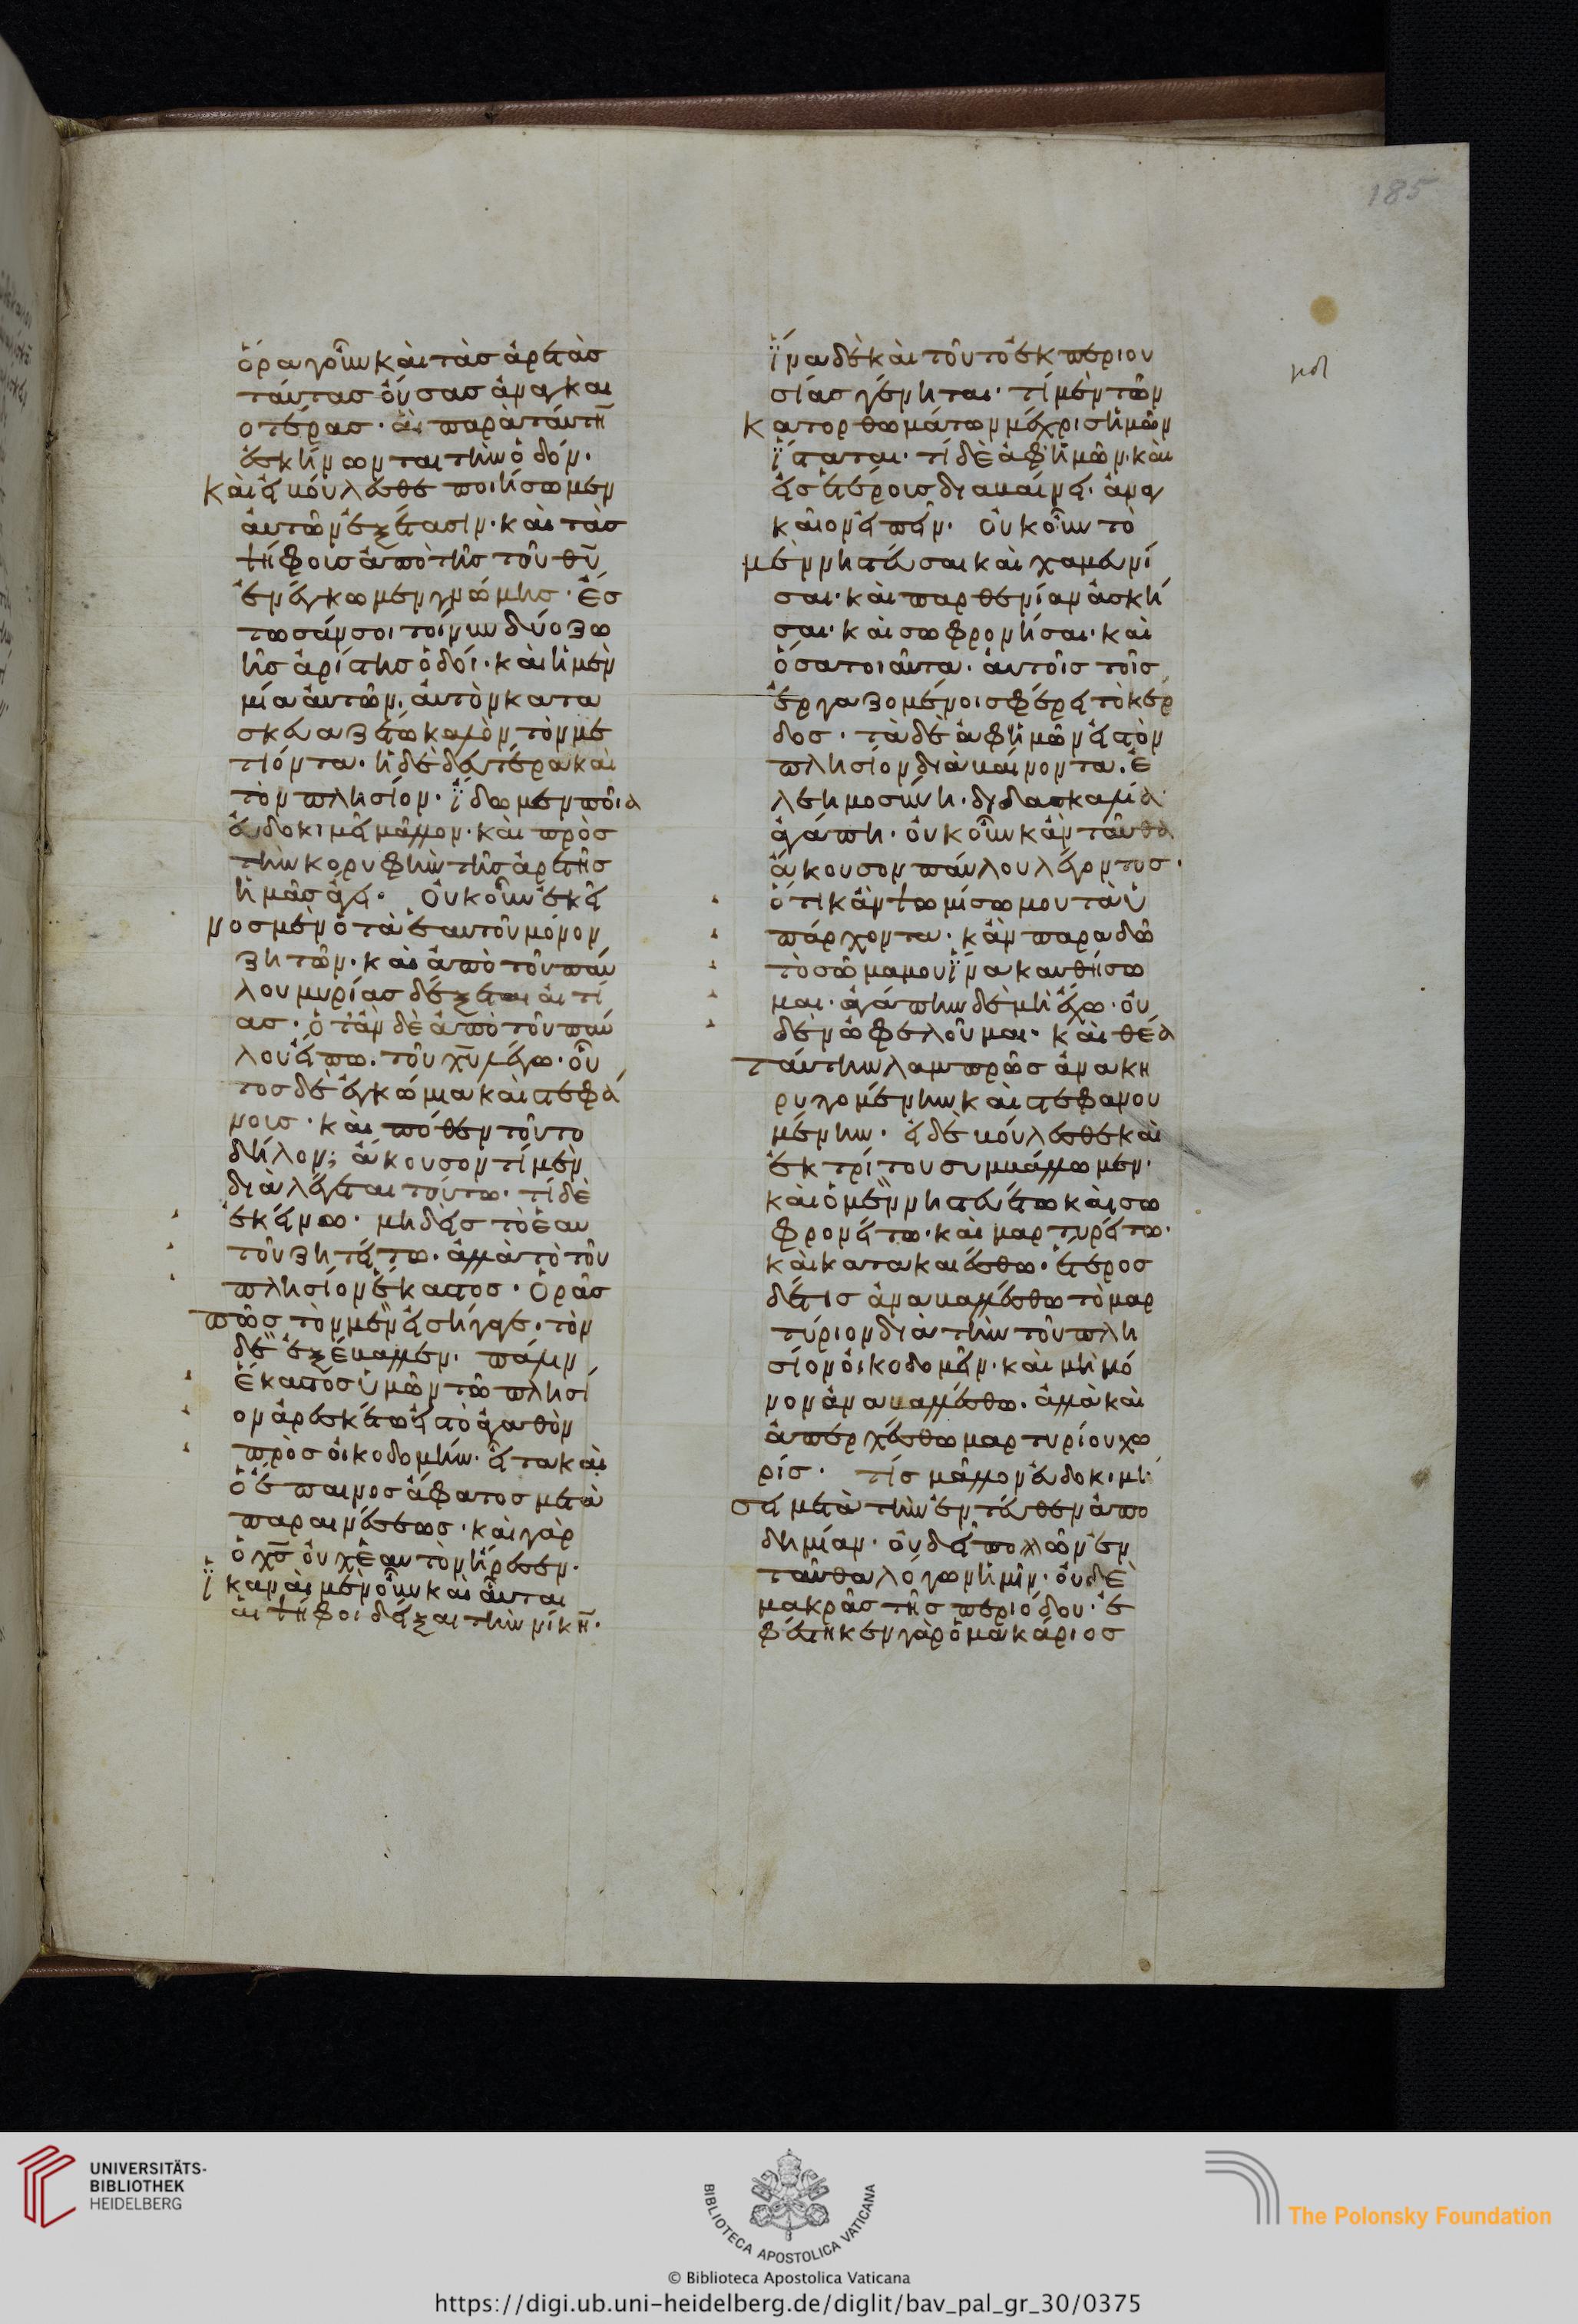 ὅρα γοῦν καὶ τὰς ἀρετὰς
ταύτας οὔσας ἀναγκαι
οτέρας· αἳ παρὰ ταύτην
ἐσκήνωνται τὴν ὁδόν·
καὶ εἰ βούλεσθε ποιήσωμεν
αὐτῶν ἐξέτασιν· καὶ τὰς
ψήφους ἀπὸ τῆς τοῦ θ̅υ̅
ἐνέγκωμεν γνώμης· ἔσ
τωσάν σοι τοίνυν δύο ζω
ῆς ἀρίστης ὁδοί· καὶ ἡ μὲν
μία αὐτῶν. αὐτὸν κατα
σκευαζέτω καλὸν τὸν με
τιόντα· ἡ δὲ δευτέρα καὶ
τὸν πλησίον· ἴδωμεν ποία
εὐδοκιμεῖ μᾶλλον· καὶ πρὸς
τὴν κορυφὴν τῆς ἀρετῆς
ἡμᾶς ἄγει· οὐκοῦν ἐκεῖ
νος μὲν ὁ τὰ ἑαυτοῦ μόνον
ζητῶν· καὶ ἀπὸ τοῦ παύ
λου μυρίας δέξεται αἰτί
ας· ὅταν δὲ ἀπὸ τοῦ παύ
λου εἴπω. τοῦ χ̅υ̅ λέγω· οὗ
τος δὲ ἐγκώμια καὶ στεφά
νους· καὶ πόθεν τοῦτο
δῆλον; ἄκουσον τί μὲν
διαλέγεται τούτω· τί δὲ
ἐκείνω· μηδεὶς τὸ ἑαυ
τοῦ ζητείτω· ἀλλὰ τὸ τοῦ
πλησίον ἕκαστος· ὁρᾶς
πῶς τὸν μὲν εἰσήγαγε· τὸν
δὲ ἐξέβαλλεν· πάλιν
ἕκαστος ὑμῶν τῶ πλησί
ον ἀρεσκέτω εἰς τὸ ἀγαθὸν
πρὸς οἰκοδομήν· εἶτα καὶ
ὁ ἔπαινος ἄφατος μετὰ
παραινέσεως· καὶ γὰρ
ὁ χ̅ς̅ οὐχ ἑαυτὸν ἤρεσεν·
ἱκαναὶ μὲν οὖν καὶ αὗται
αἱ ψῆφοι δεῖξαι τὴν νίκην·
ἵνα δὲ καὶ τοῦτο ἐκ περιου
σίας γένηται· τί μὲν τῶν
κατορθωμάτων μέχρις ἡμῶν
ἵσταται· τί δὲ ἀφ ἡμῶν· καὶ
εἰς ἑτέρους διαβαίνει· ἀναγ
καῖον εἰπεῖν· οὐκοῦν τὸ
μὲν νηστεῦσαι καὶ χαμευνί
σαι· καὶ παρθενίαν ἀσκῆ
σαι· καὶ σωφρονῆσαι· καὶ
ὅσα τοιαῦτα· αὐτοῖς τοῖς
ἐργαζομένοις φέρει τὸ κέρ
δος· τὰ δὲ ἀφ ἡμῶν εἰς τὸν
πλησίον διαβαίνοντα· ἐ
λεημοσύνη· διδασκαλία·
ἀγάπη· οὐκοῦν κἀνταῦθα
ἄκουσον παύλου λέγοντος·
ὅτι κἂν ψωμίσω μου τὰ ὑ
πάρχοντα· κἂν παραδῶ
τὸ σῶμα μου ἵνα καυθήσω
μαι· ἀγάπην δὲ μὴ ἔχω· οὐ
δὲν ὠφελοῦμαι· καὶ θέα
ταύτην λαμπρῶς ἀνακη
ρυγομένην καὶ στεφανου
μένην· εἰ δὲ βούλεσθε καὶ
ἐκ τρίτου συμβάλλωμεν·
καὶ ὁ μὲν νηστευέτω καὶ σω
φρονείτω· καὶ μαρτυρείτω·
καὶ κατακαιέσθω· ἕτερος
δέ τις ἀναβαλλέσθω τὸ μαρ
τύριον διὰ τὴν τοῦ πλη
σίον οἰκοδομήν· καὶ μὴ μό
νον ἀναβαλλέσθω· ἀλλὰ καὶ
ἀπερχέσθω μαρτυρίου χω
ρίς· τίς μᾶλλον εὐδοκιμή
σει μετὰ τὴν ἐντεῦθεν ἀπο
δημίαν· οὐ δεῖ πολλῶν ἐν
ταῦθα λόγων ἡμῖν· οὐδὲ
μακρᾶς τῆς περιόδου· ἐ
φέστηκεν γὰρ ὁ μακάριος
185
UNIVERSITÄTS-
BIBLIOTHEK
HEIDELBERG
BIBLIOTECA APOSTOLICA VATICANA
The Polonsky Foundation
© Biblioteca Apostolica Vaticana
https://digi.ub.uni-heidelberg.de/diglit/bav_pal_gr_30/0375